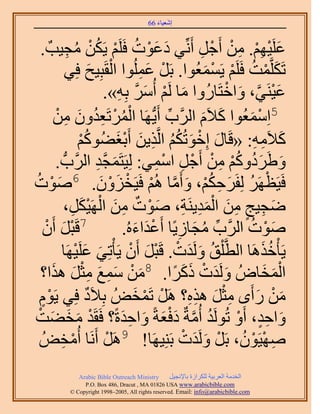 إشعياء 66
عَلَيْهِمْ. مِنْ أَجْلِ أَنِّي دَعَوْتُ فَلَمْ يَكُنْ مُجِيبٌ.
تَكَلَّمْتُ فَلَمْ يَسْمَعُوا. بَلْ عَمِلُوا الْقَبِيحَ فِي
عَيْنَيَّ، وَاخْتَارُوا مَا لَمْ أُسَرَّ بِهِ».
5اسْمَعُوا كَلاَمَ الرَّبِّ أَيُّهَا الْمُرْتَعِدُونَ مِنْ
كَلاَمِهِ: «قَالَ إِخْوَتُكُمُ الَّذِينَ أَبْغَضُوكُمْ
وَطَرَدُوكُمْ مِنْ أَجْلِ اسْمِي: لِيَتَمَجَّدِ الرَّبُّ.
فَيَظْهَرُ لِفَرَحِكُمْ، وَأَمَّا هُمْ فَيَخْزَوْنَ. 6صَوْتُ
ضَجِيجٍ مِنَ الْمَدِينَةِ، صَوْتٌ مِنَ الْهَيْكَلِ،
صَوْتُ الرَّبِّ مُجَازِيًا أَعْدَاءَهُ. 7قَبْلَ أَنْ
يَأْخُذَهَا الطَّلْقُ وَلَدَتْ. قَبْلَ أَنْ يَأْتِيَ عَلَيْهَا
الْمَخَاضُ وَلَدَتْ ذَكَرًا. 8مَنْ سَمِعَ مِثْلَ هذَا؟
مَنْ رَأَى مِثْلَ هذِهِ؟ هَلْ تَمْخَضُ بِلاَدٌ فِي يَوْمٍ
وَاحِدٍ، أَوْ تُولَدُ أُمَّةٌ دَفْعَةً وَاحِدَةً؟ فَقَدْ مَخَضَتْ
صِهْيَوْنُ، بَلْ وَلَدَتْ بَنِيهَا! 9هَلْ أَنَا أُمْخِضُ
Arabic Bible Outreach Ministry الخدمة العربية للكرازة بالإنجيل
P.O. Box 486, Dracut , MA 01826 USA www.arabicbible.com
© Copyright 1998-2005, All rights reserved. Email: info@arabicbible.com